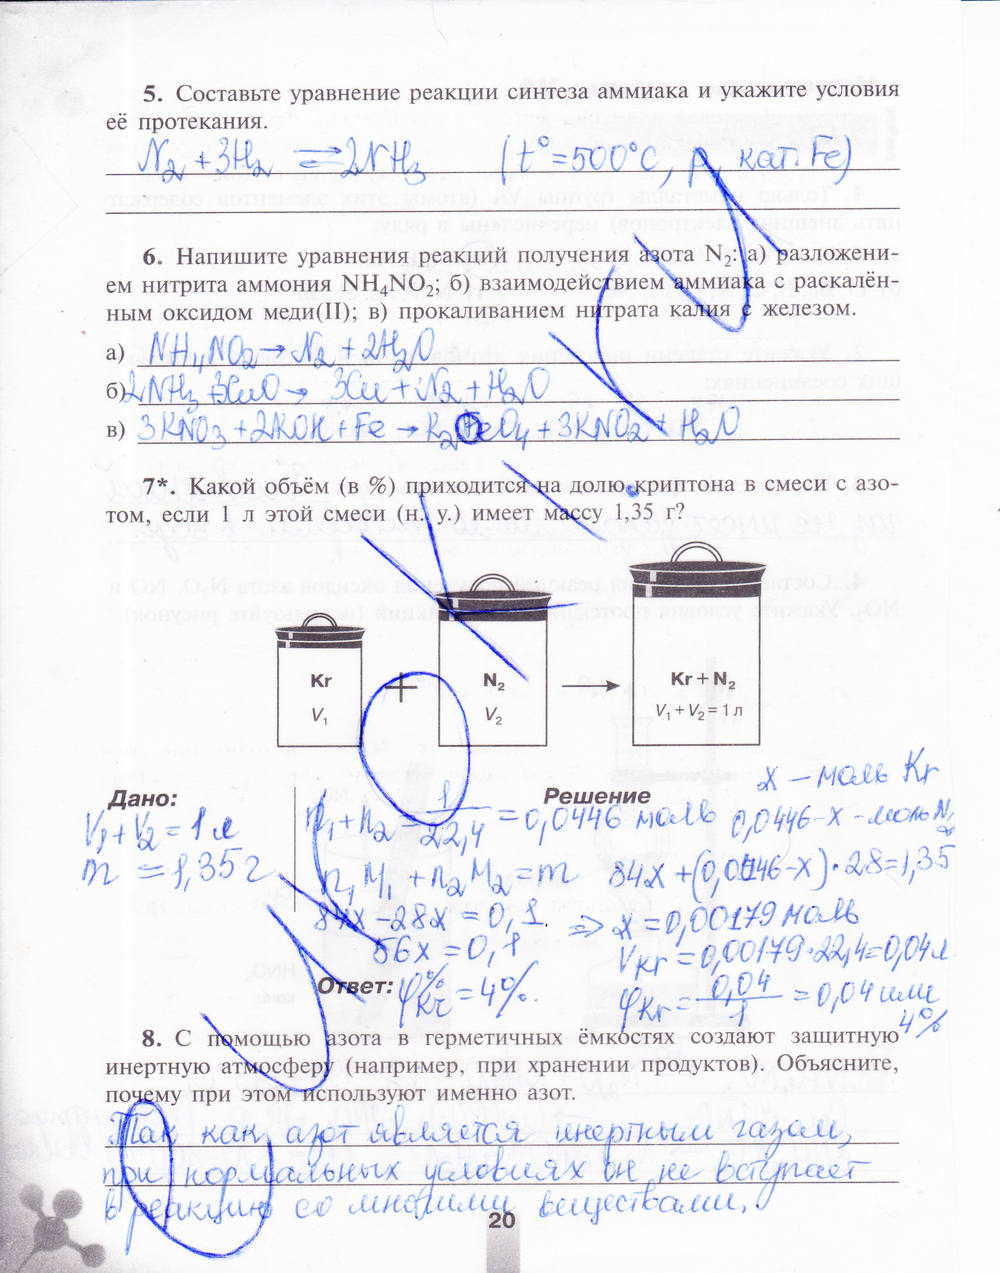 5. Составьте уравнение реакции синтеза аммиака и укажите условия
её протекания.
N₂ + 3H₂ ⇄ 2NH₃ (t° = 500°C, p, кат. Fe)
6. Напишите уравнения реакций получения азота N₂: а) разложени-
ем нитрита аммония NH₄NO₂; б) взаимодействием аммиака с раскалён-
ным оксидом меди(II); в) прокаливанием нитрата калия с железом.
а) NH₄NO₂ → N₂ + 2H₂O
б) 2NH₃ + 3CuO → 3Cu + N₂ + H₂O
в) 3KNO₃ + 2KOH + Fe → K₂FeO₄ + 3KNO₂ + H₂O
7*. Какой объём (в %) приходится на долю криптона в смеси с азо-
том, если 1 л этой смеси (н. у.) имеет массу 1,35 г?
Kr + N₂ → Kr + N₂
V₁ V₂ V₁ + V₂ = 1 л
x – моль Kr
Дано: Решение
V₁ + V₂ = 1 л n₁ + n₂ = 1/22,4 = 0,0446 моль 0,0446 - x - моль N₂
m = 1,35 г n₁M₁ + n₂M₂ = m 84x + (0,0446 - x) · 28 = 1,35
84x - 28x = 0,1. ⇒ x = 0,00179 моль
56x = 0,1 Vkr = 0,00179 · 22,4 = 0,04 л
Ответ: φ%Kr = 4%. φkr = 0,04/1 = 0,04 или
4%
8. С помощью азота в герметичных ёмкостях создают защитную
инертную атмосферу (например, при хранении продуктов). Объясните,
почему при этом используют именно азот.
Так как азот является инертным газом,
при нормальных условиях он не вступает
в реакцию со многими веществами.
20